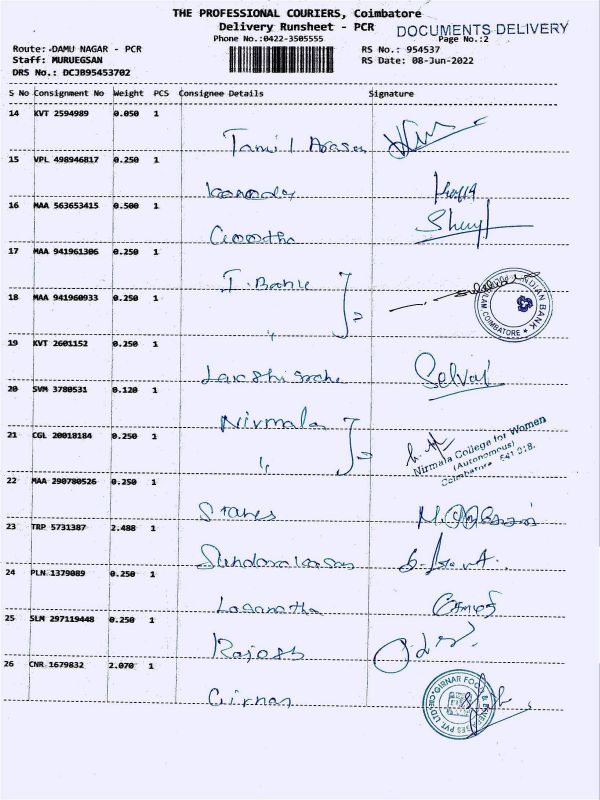 THE PROFESSIONAL COURIERS, Coimbatore
Delivery Runsheet - PCR
DOCUMENTS DELIVERY
Phone No.:0422-3505555
Page No.:2
Route: DAMU NAGAR - PCR
RS No.: 954537
Staff: MURUEGSAN
RS Date: 08-Jun-2022
DRS No.: DCJB95453702
S No Consignment No Weight PCS Consignee Details Signature
14 KVT 2594989 0.050 1
Tamil Arasan
15 VPL 498946817 0.250 1
16 MAA 563653415 0.500 1
17 MAA 941961306 0.250 1
I. Bank
18 MAA 941960933 0.250 1
INDIAN BANK
COIMBATORE
19 KVT 2601152 0.250 1
Selvar
20 SVM 3780531 0.120 1
Nirmala
21 CGL 20018184 0.250 1
"
Nirmala College for Women
(Autonomous)
Coimbatore - 641 018.
22 MAA 290780526 0.250 1
Stanes
23 TRP 5731387 2.488 1
24 PLN 1379089 0.250 1
Loganatha
25 SLM 297119448 0.250 1
Rajesh
26 CNR 1679832 2.070 1
Girnar
GIRNAR FOOD & BEVERAGES PVT. LTD.